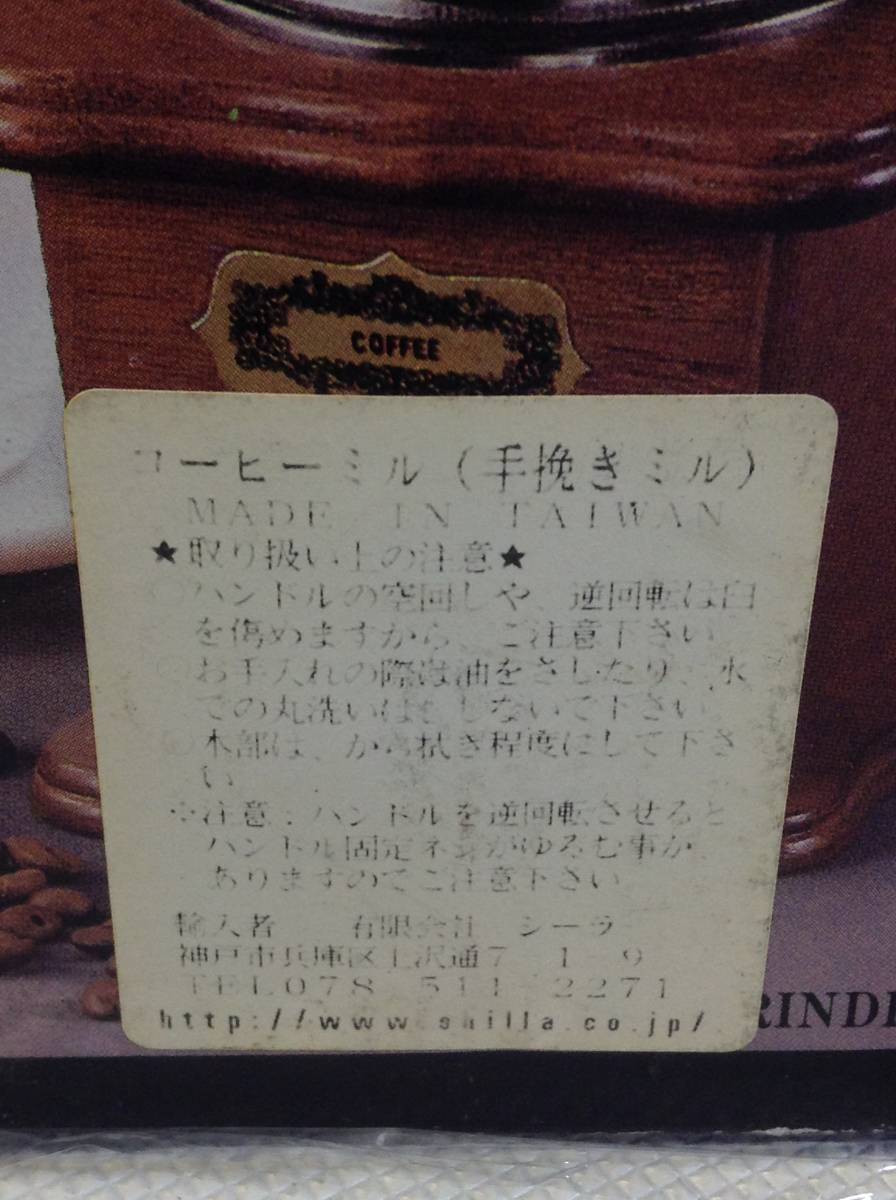 COFFEE
コーヒーミル（手挽きミル）
MADE IN TAIWAN
★取り扱い上の注意★
○ハンドルの空回しや、逆回転は臼
を傷めますから、ご注意下さい。
○お手入れの際は油をさしたり、水
での丸洗いはしないで下さい。
○木部は、から拭き程度にして下さ
い
※注意：ハンドルを逆回転させると
ハンドル固定ネジがゆるむ事が、
ありますのでご注意下さい
輸入者 有限会社 シーラ
神戸市兵庫区上沢通7-1-9
TEL078-511-2271
http://www.shilla.co.jp/
RINDE